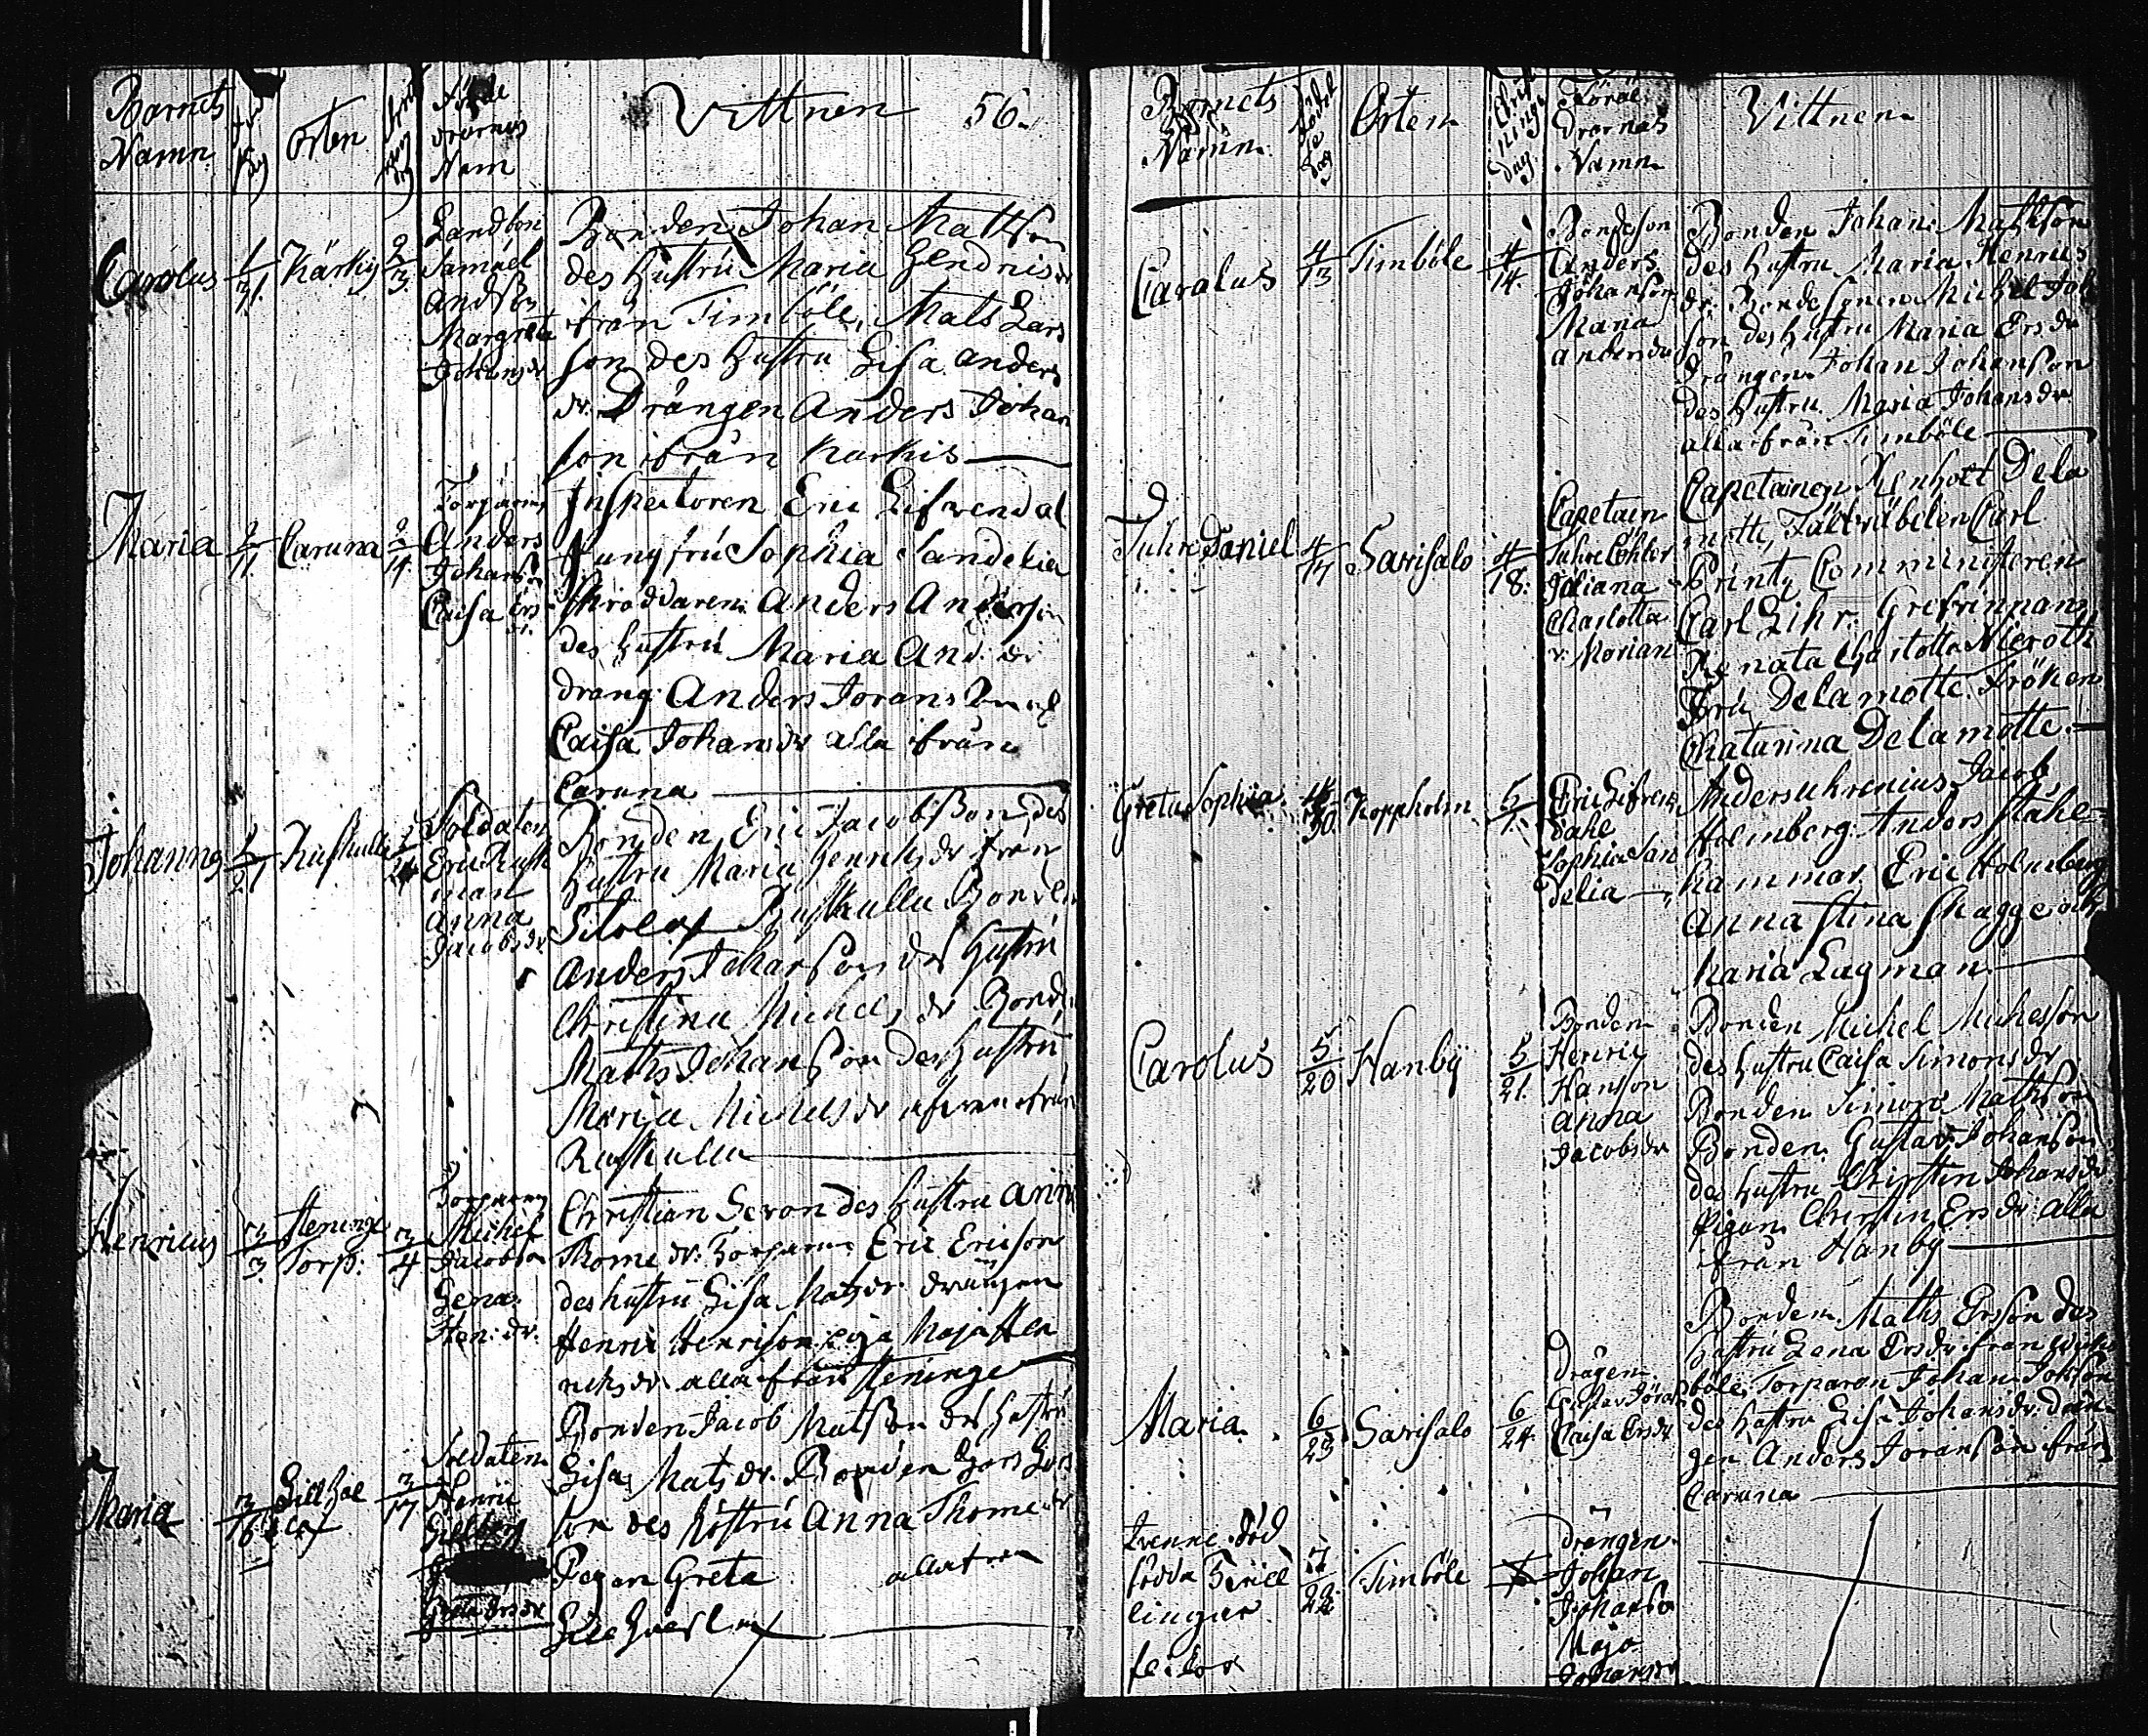 Barnets
Namn
Orten
Föräl
drarnas
Nam
Vittnen 56.
Carolus
Kärky
Landbon
Samuel
Andßon
Margreta
Johansdr
Bonden Johan Mattson
des hustru Maria Hendrisdr
ifrån Timböle, Mats Lars
son des hustru Lisa anders
dr. Drängen Anders Johan
son ifrån Karkis
Maria
2/11
Caruna
Torparen
Anders
Johanson
Caisa Ers
dr.
Inspectoren Eric Lifvendal
Jungfru Sophia Sandelia
Skräddaren Anders Anderson
des hustru Maria And. dr
dräng Anders Jorans
Caisa Johansdr alla ifrån
Caruna
Johannes
Soldaten
Eric Rusk
man
Anna
Jacobsdr
Bonden Eric Jacobßon des
hustru Maria Henriksdr från
Bonden
Anders Johanson des hustru
Christina Michelsdr Bonden
Maths Johanson des hustru
Maria Michelsdr
Henricus
3/3
Steninge
Torp.
3/4
Torparen
Michel
Jacobson
Lena
Hen. dr.
Christian Sevon des hustru Anna
Thome dr. Torparen Eric Ericson
des hustru Lisa Matsdr. drängen
Henric Henricson piga Maja Hen
ricksdr. alla från Steninge
Maria
3/16
3/17
Soldaten
Henric
Gillberg
Greta Ersdr
Bonden Jacob Matsson des hustru
Lisa Mats dr. Bonden Lars Lars
son des hustru Anna Thome dr
Pigan Greta alla från
Barnets
Namn
Födel
se
dag
Orten
Christ
nings
dag.
Föräl
drarnas
Namn
Vittnen
Carolus
4/13
Timböle
4/14.
Bondeson
Anders
Johanson
Maria
andersdr
Bonden Johan Mathson
des hustru Maria Henrics
dr. Bondesonen Michel Joh
son des hustru Maria Ersdr
drängen Johan Johanson
des hustru Maria Johansdr
alla från Timböle
Tuhre Daniel
4/17
Sarisalo
4/18.
Capetain
Tuhre Cöhler
Juliana
Charlotta
v. Morian
Capetainen Renholt Dela
motte, Carl
Printz Comministeren
Carl Lihr. Grefvinnan
Renata Charlotta Nieroth
Fru Delamotte. Fröken
Chatarina Delamotte.
Greta Sophia
4/30
Koppholm
5/1.
Eric Lifven
dahl
Sophia San
delia
Anders uhrenius Jacob
Holmberg. Anders Ståhl
hammar, Eric Holmberg
Anna Stina Skagge och
Maria Lagman
Carolus
5/20
Hanby
5/21.
Bonden
Henric
Hanson
Anna
Jacobsdr
Bonden Michel Michelson
des hustru Caisa Simonsdr
Bonden Simon Mathson
Bonden Gustav Johanson
des hustru Christin Johansdr
Pigan Christin Ersdr. alla
ifrån Hanby
Maria
6/23
Sarisalo
6/24
drägen
Gustav Jöran
Caisa Ersdr
Bonden Maths Ersson des
hustru Lena Ersdr. från
böle, Torparen Johan Johson
des hustru Lisa Johansdr. drän
gen Anders Joranson från
Caruna
tvenne död
födda Tvill
lingar
Timböle
drängen
Johan
Johanso
Maja
Johansdr